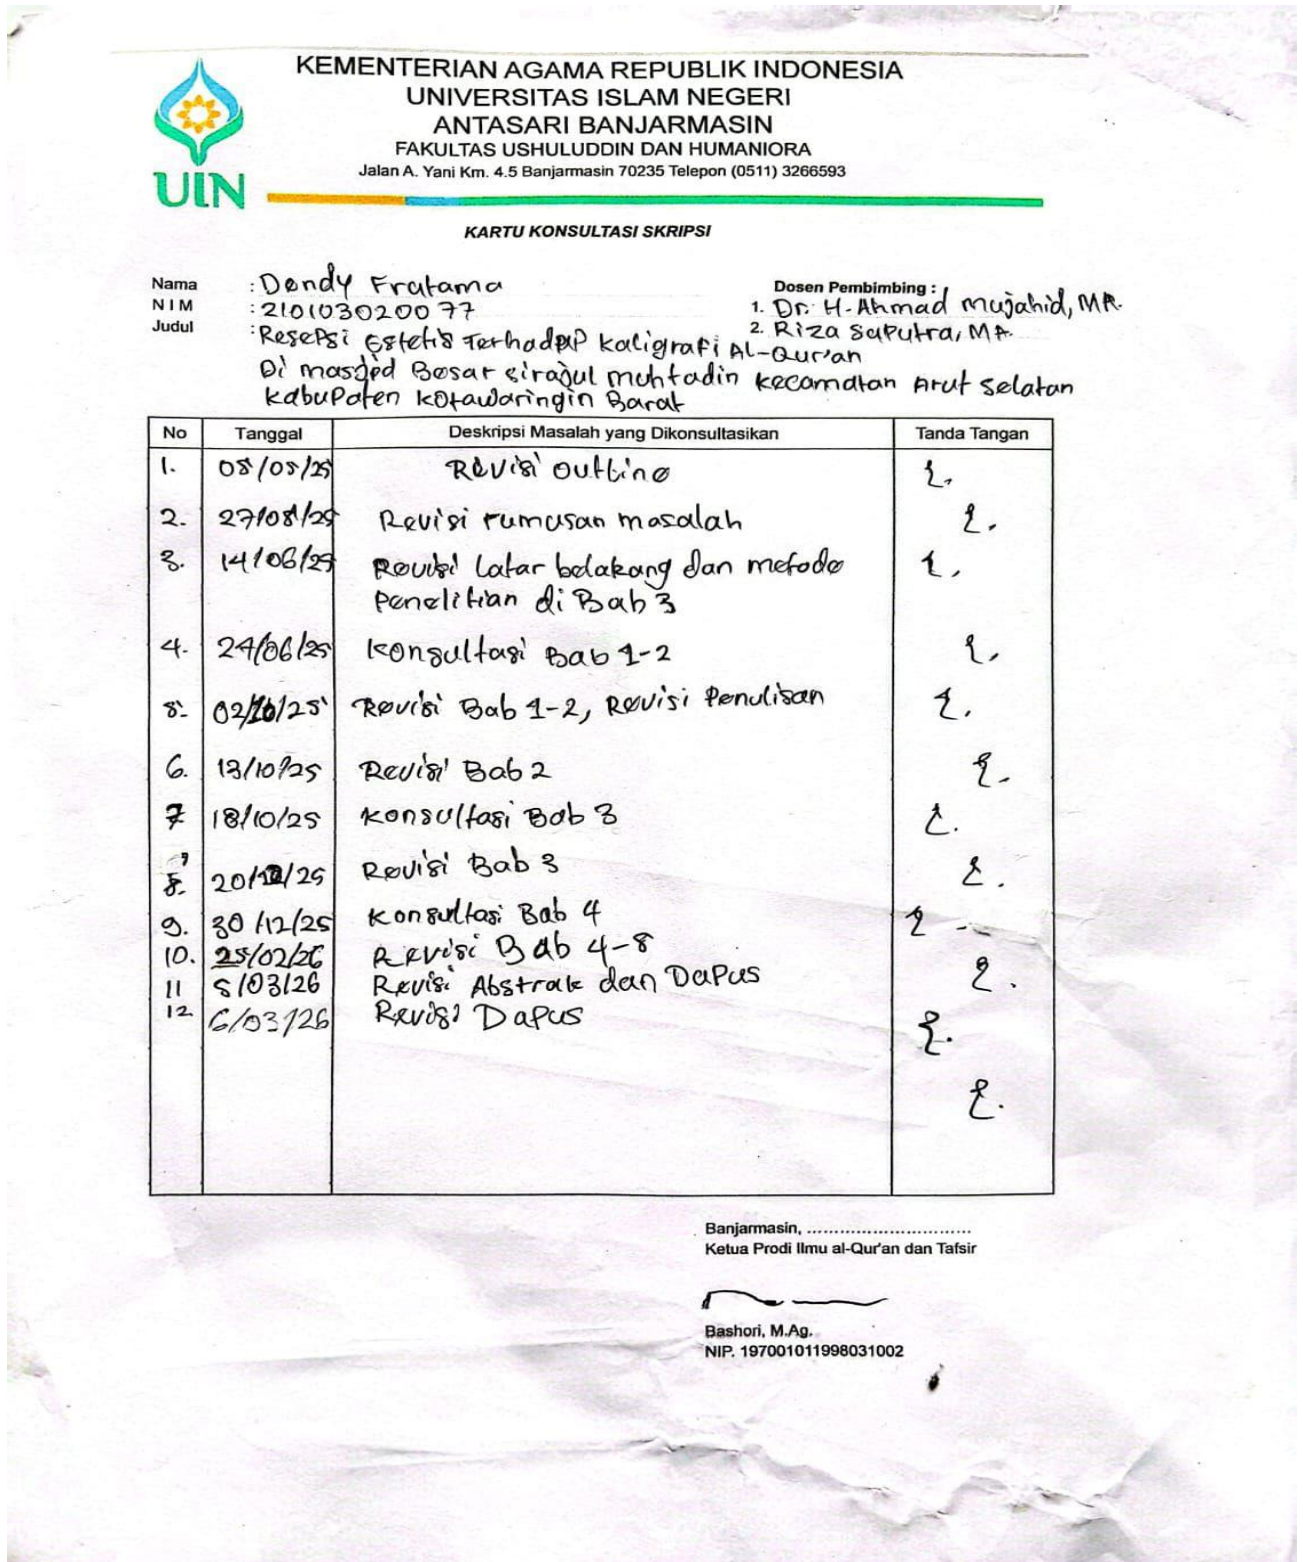 KEMENTERIAN AGAMA REPUBLIK INDONESIA
UNIVERSITAS ISLAM NEGERI
ANTASARI BANJARMASIN
FAKULTAS USHULUDDIN DAN HUMANIORA
Jalan A. Yani Km. 4.5 Banjarmasin 70235 Telepon (0511) 3266593
UIN
KARTU KONSULTASI SKRIPSI
Nama : Dendy Fratama
NIM : 210103020077
Judul : Resepsi Estetis Terhadap Kaligrafi Al-Qur'an
Di masjid Besar sirajul muhtadin kecamatan Arut selatan
kabupaten kotawaringin Barat
Dosen Pembimbing :
1. Dr. H. Ahmad Mujahid, MA.
2. Riza Saputra, MA.
No Tanggal Deskripsi Masalah yang Dikonsultasikan Tanda Tangan
1. Revisi outline
2. Revisi rumusan masalah
3. Revisi Latar belakang dan metode
Penelitian di Bab 3
4. 24/06/25 Konsultasi Bab 1-2
02/10/25 Revisi Bab 1-2, Revisi Penulisan
6. 13/10/25 Revisi Bab 2
7 18/10/25 Konsultasi Bab 3
8. Revisi Bab 3
9. 30/12/25 Konsultasi Bab 4
10. 25/02/26 Revisi Bab
11 5/03/26 Revisi Abstrak dan Dapus
12. 6/03/26 Revisi Dapus
Banjarmasin, ..............................
Ketua Prodi Ilmu al-Qur'an dan Tafsir
Bashori, M.Ag.
NIP. 197001011998031002